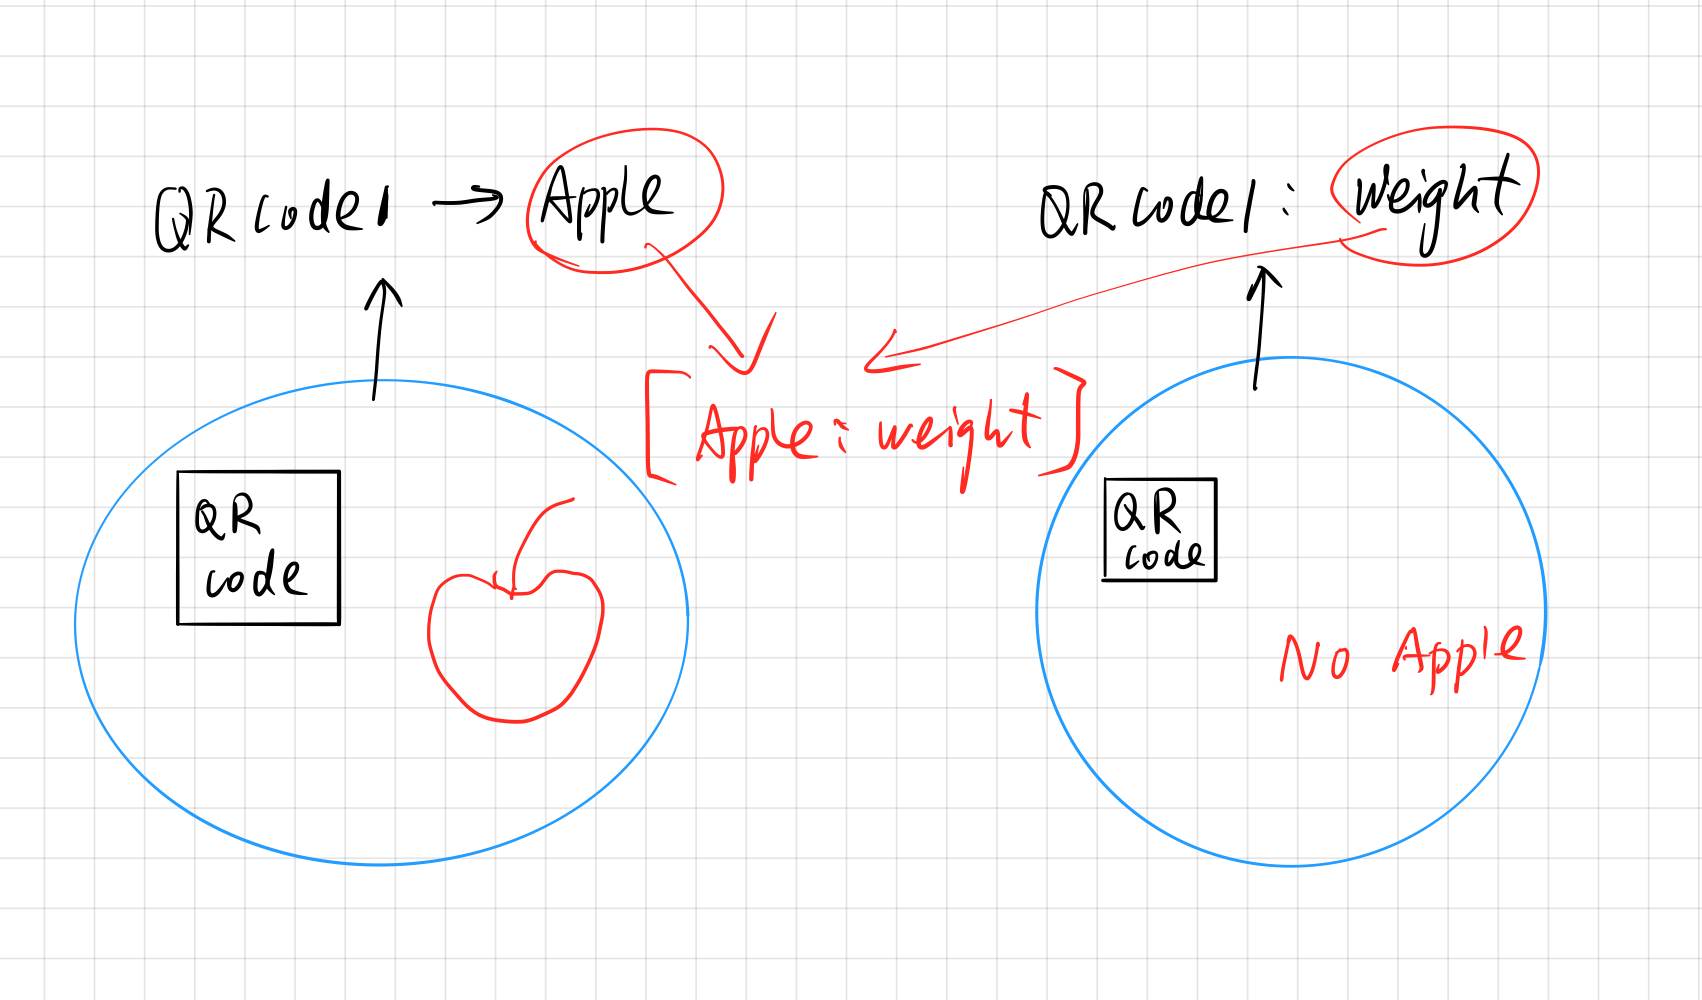 QR code 1 → Apple
QR code 1 : weight
[Apple : weight]
QR
code
QR
code
No Apple